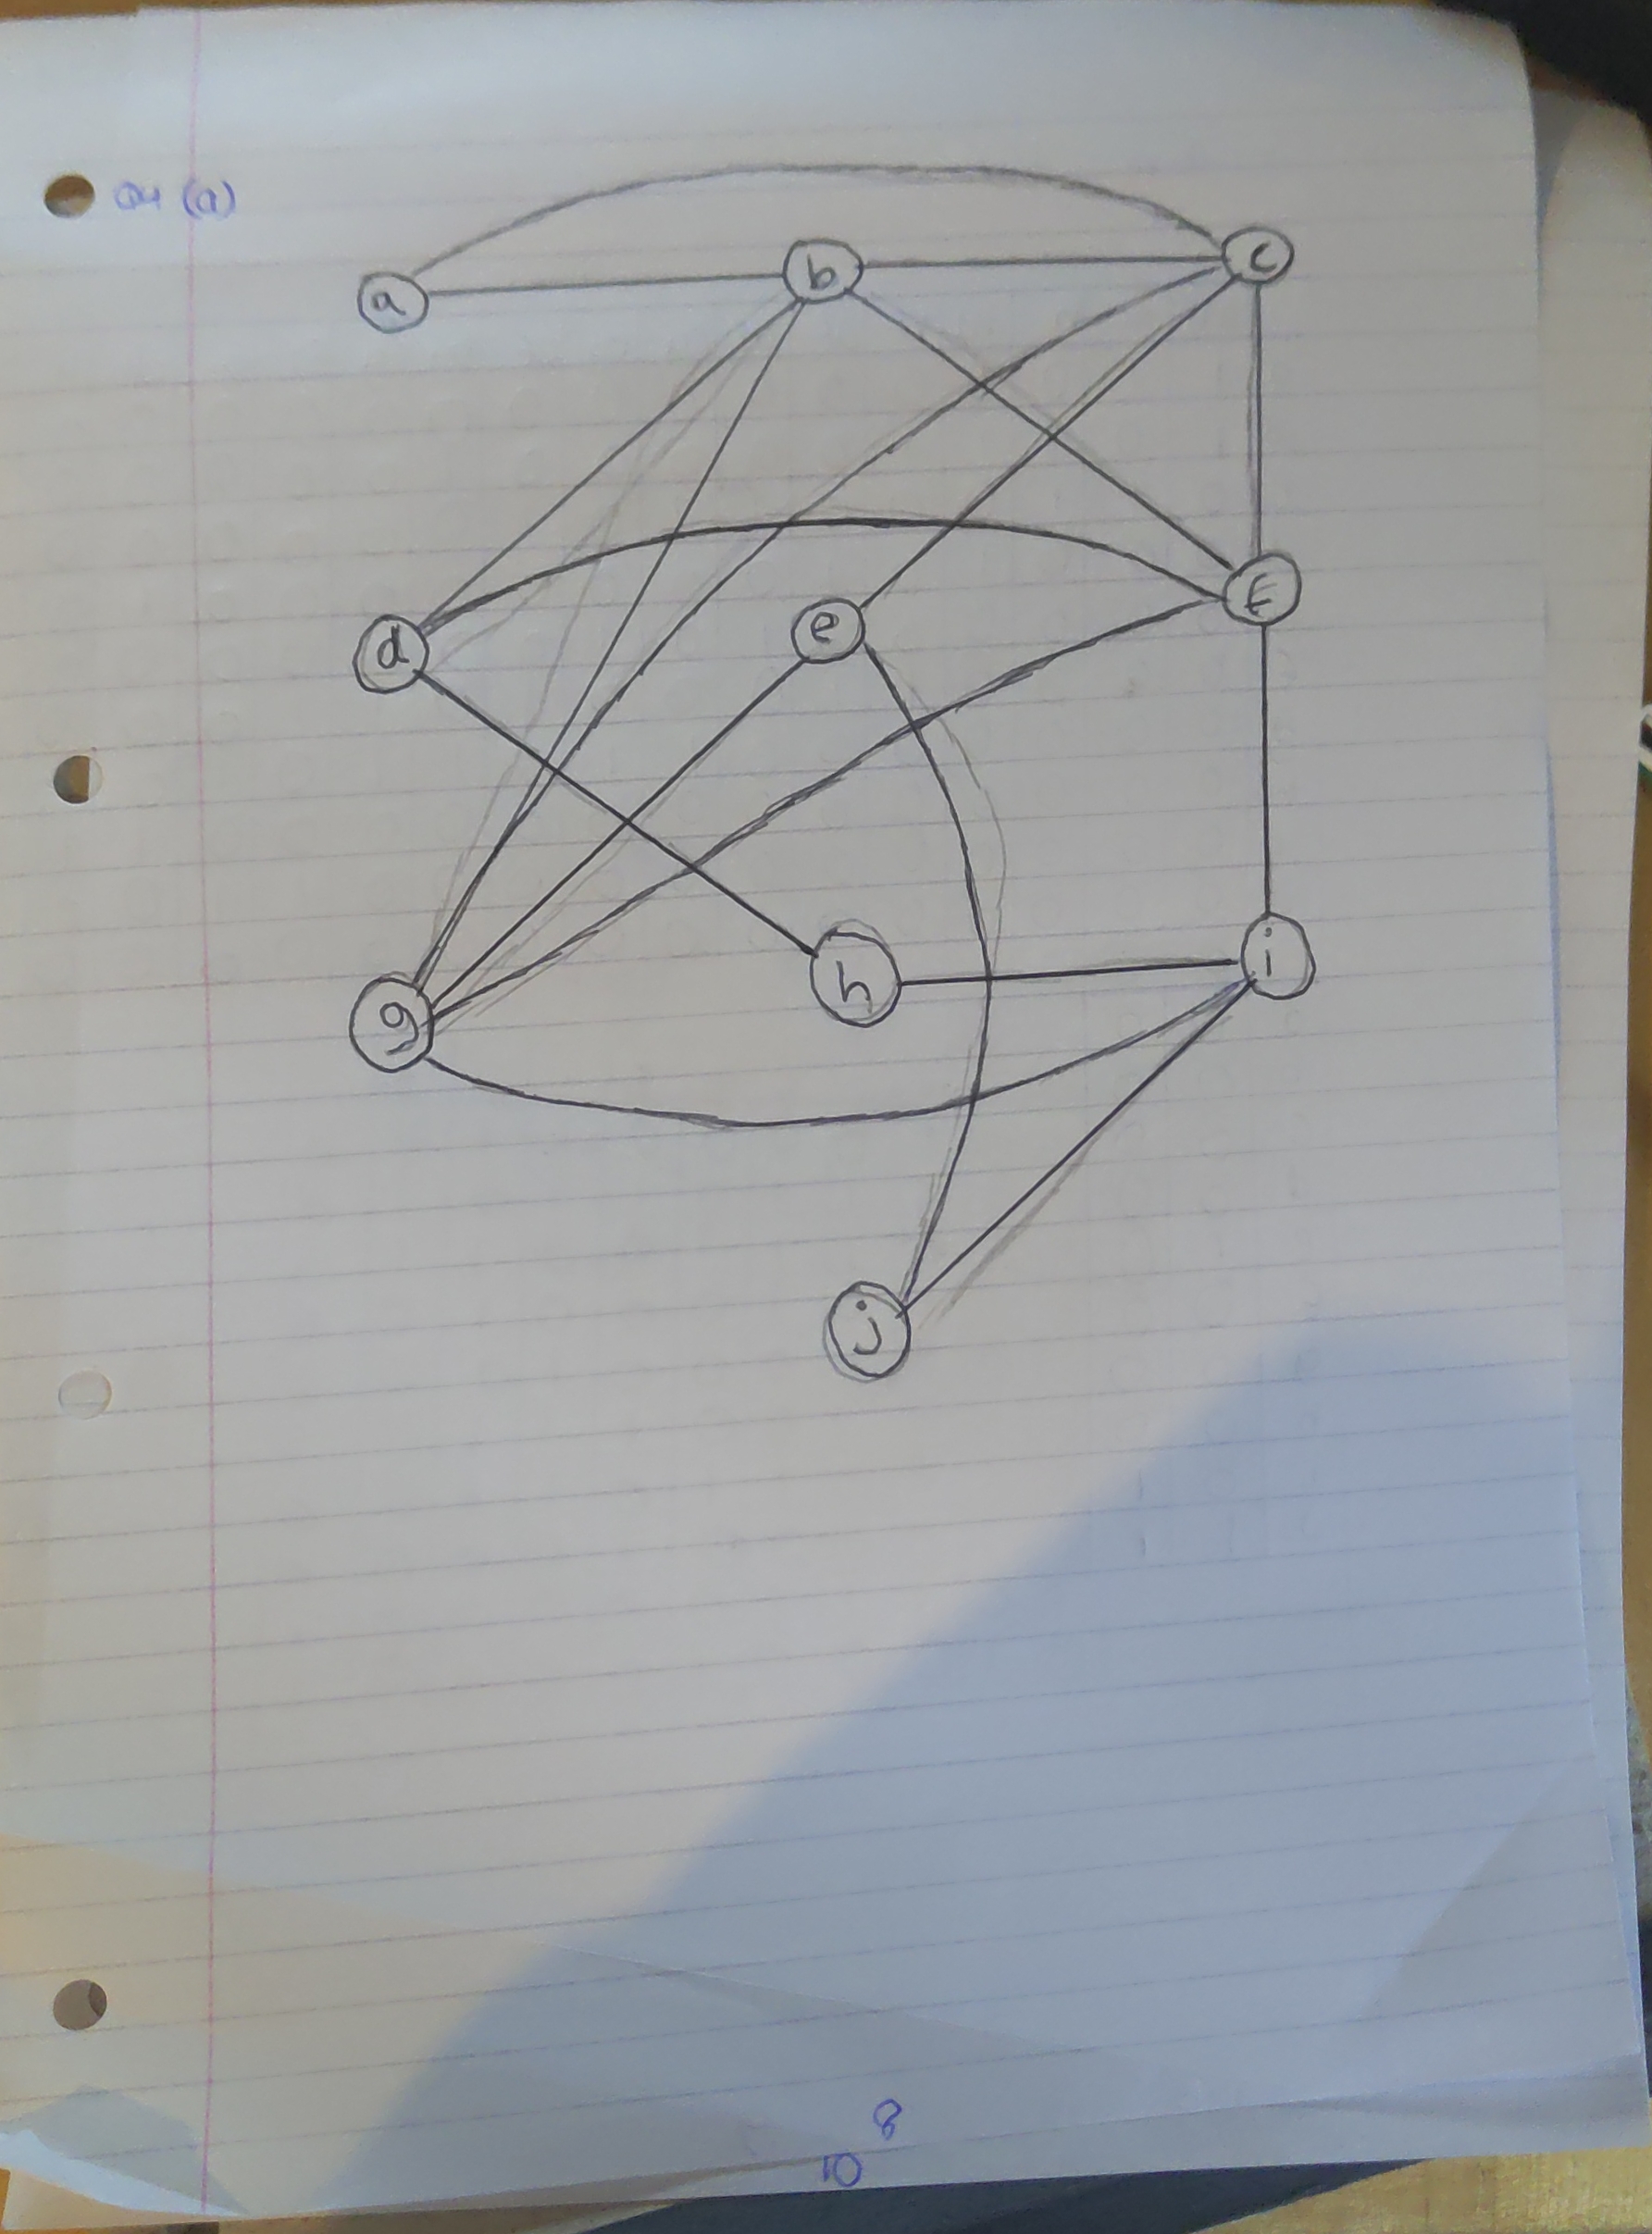 Q4 (a)
a
b
c
d
e
f
g
h
i
j
8
10